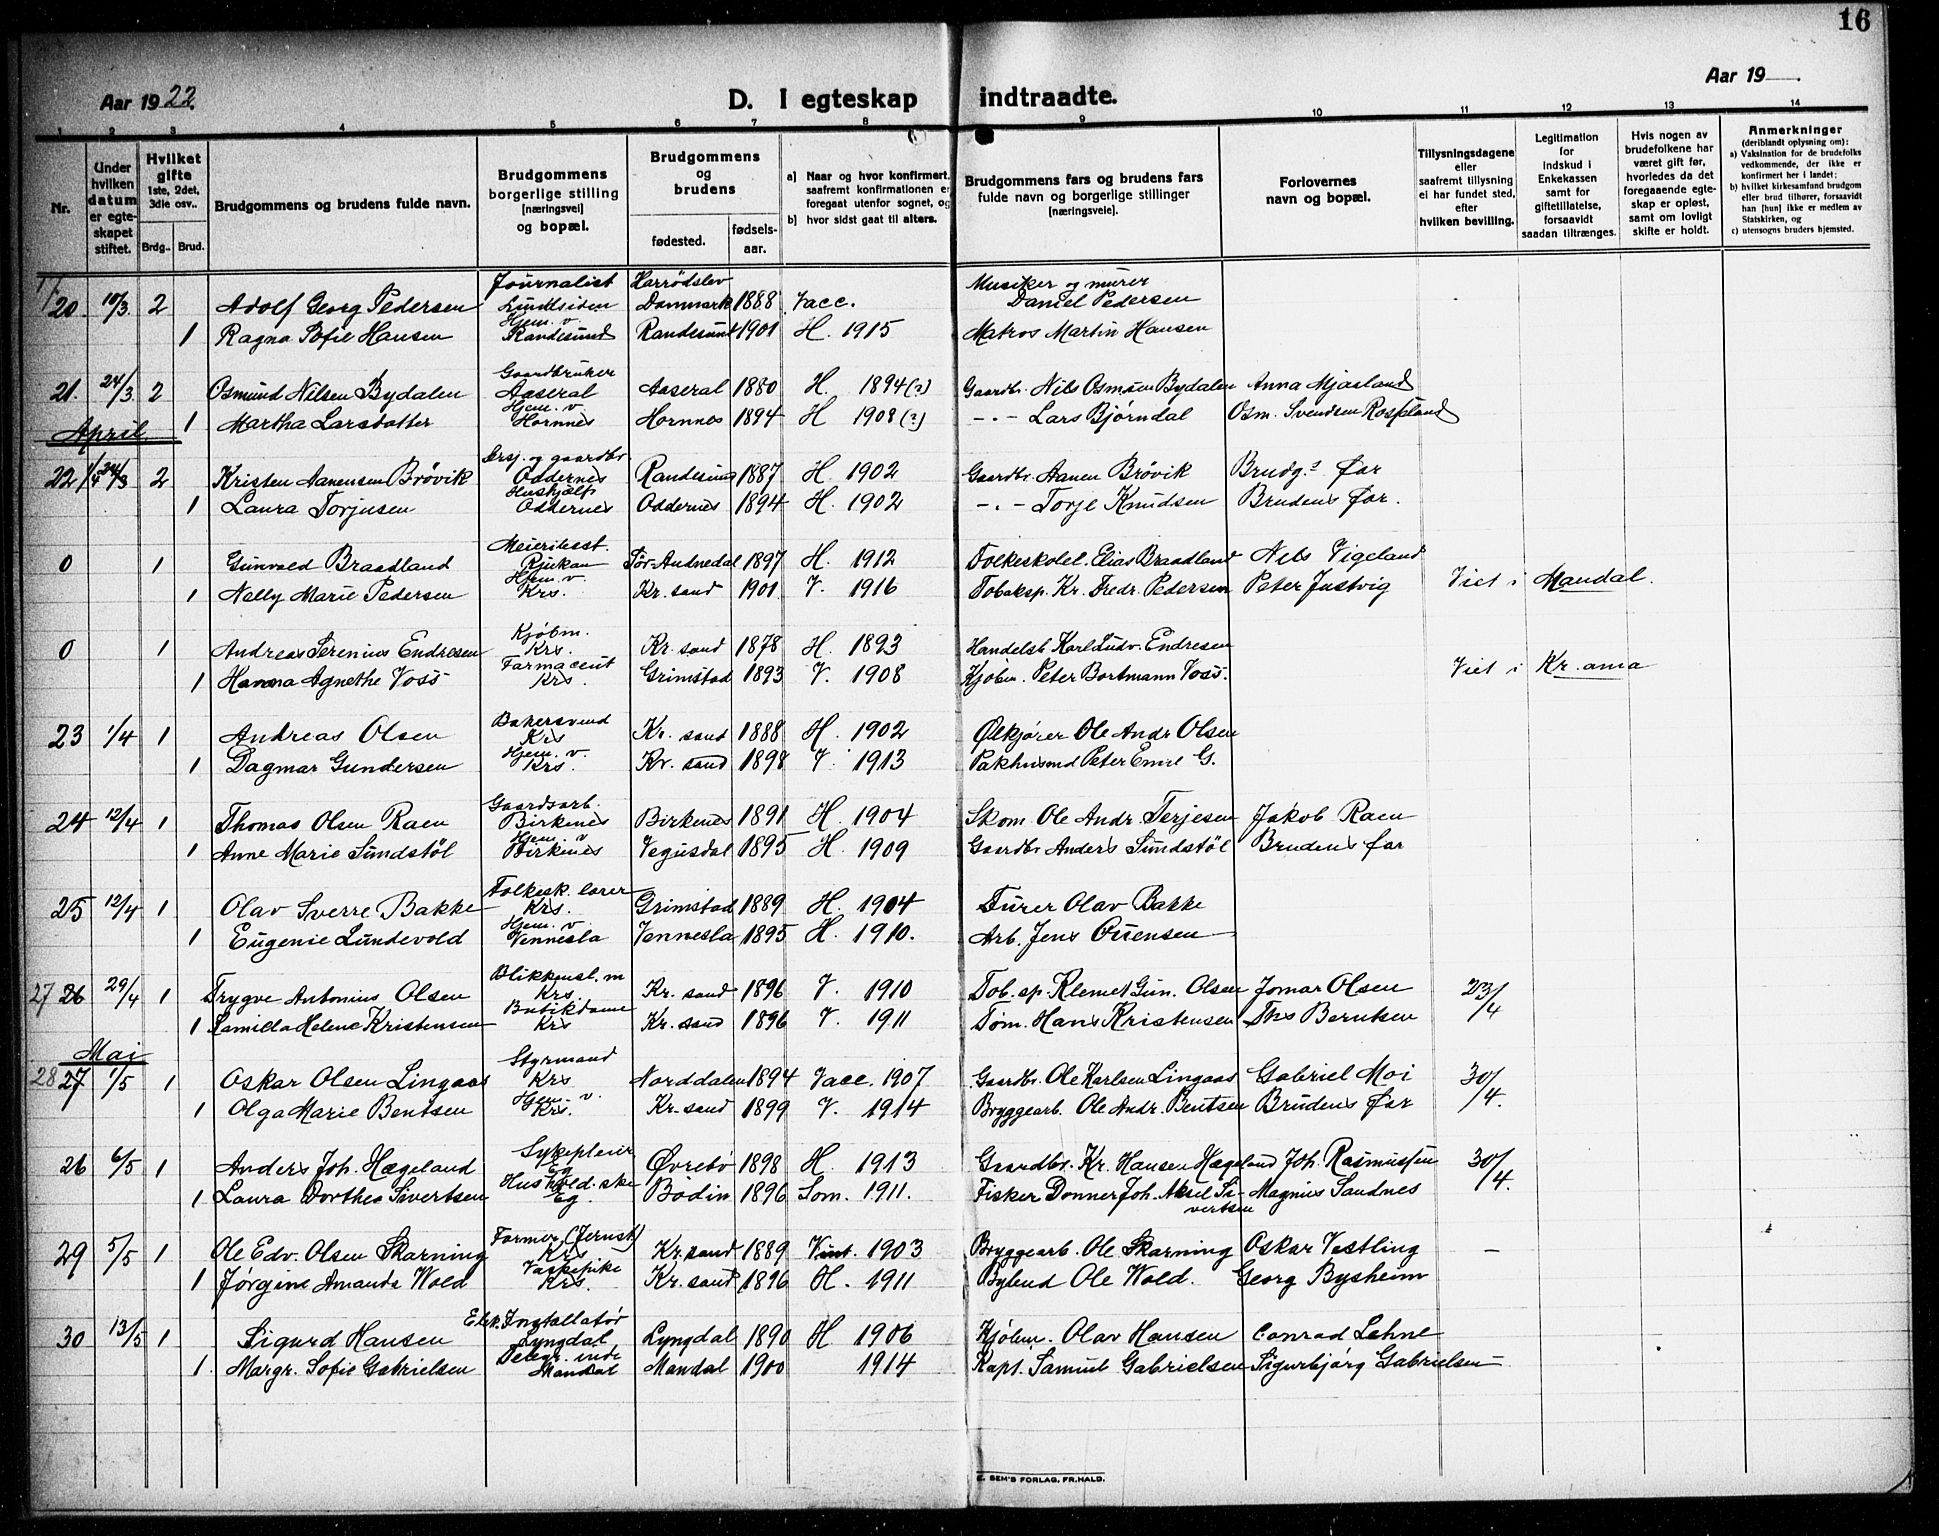 16
Aar 1922.
D. I egteskap indtraadte.
Aar 19
1 2 3 4 5 6 7 8 9 10 11 12 13 14
Nr.
Under hvilken datum er egteskapet stiftet.
Hvilket gifte 1ste, 2det, 3dle osv..
Brdg. Brud.
Brudgommens og brudens fulde navn.
Brudgommens borgerlige stilling [næringsvei] og bopæl.
Brudgommens og brudens
fødested. fødselsaar.
a) Naar og hvor konfirmert, saafremt konfirmationen er foregaat utenfor sognet, og
b) hvor sidst gaat til alters.
Brudgommens fars og brudens fars fulde navn og borgerlige stillinger [næringsveie].
Forlovernes navn og bopæl.
Tillysningsdagene eller saafremt tillysning ei har fundet sted, efter hvilken bevilling.
Legitimation for indskud i Enkekassen samt for giftetillatelse, forsaavidt saadan tiltrænges.
Hvis nogen av brudefolkene har været gift før, hvorledes da det foregaaende egteskap er opløst, samt om lovligt skifte er holdt.
Anmerkninger (deriblandt oplysning om):
a) Vaksination for de brudefolks vedkommende, der ikke er konfirmert her i landet;
b) hvilket kirkesamfund brudgom eller brud tilhører, forsaavidt han [hun] ikke er medlem av Statskirken, og
c) utensogns bruders hjemsted.
Journalist Harrødslev Musiker og murer
20 10/3 2 Adolf Georg Pedersen Lundsiden Danmark 1888 Vacc. Daniel Pedersen
Hjem. v.
1 Ragna Sofie Hansen Randesund Randesund 1901 H. 1915 Matros Martin Hansen
Gaardbruker
21. 24/3 2 Osmund Nilsen Bydalen Aaseral Aaseral 1880 H. 1894(?) Gaardbr. Nils Osmsen Bydalen Anna Mjaaland
Hjem. v
1 Martha Larsdatter Hornnes Hornnes 1894 H 1908(?) - . - Lars Bjørndal Osm. Svendsen Rosseland
April
og gaardbr.
22 24/3 2 Kristen Aanensen Brøvik Oddernes Randesund 1887 H. 1902 Gaardbr. Aanen Brøvik Brudg.s far
Hushjælp
1 Laura Torjusen Oddernes Oddernes 1894 H. 1902 - . - Torje Knudsen Brudens far.
Meieribest.
0 1 Gunvald Braadland Rjukan Sør-Audnedal 1897 H. 1912 Folkeskolel. Elias Braadland Nils Vigeland
Hjem. v.
1 Nelly Marie Pedersen Krs. Kr. sand 1901 V. 1916 Tobaksp. Kr. Fredr. Pedersen Peter Justvig Viet i Mandal.
Kjøbm.
0 1 Andreas Serenius Endresen Krs. Kr. sand 1878 H. 1893 Handelsb. Karl Ludv. Endresen
Farmaceut
1 Hanna Agnethe Voss Krs. Grimstad 1893 V. 1908 Kjøbm. Peter Bortmann Voss. Viet i Kr. ania
Bakersvend
23 1/4 1 Andreas Olsen Krs Kr. sand 1888 H. 1902 Ølkjører Ole Andr Olsen
Hjem. v.
1 Dagmar Gundersen Krs. Kr. sand 1898 V. 1913 Pakhusmd Peter Emil G.
Gaardsarb.
24 12/4 1 Thomas Olsen Raen Birkenes Birkenes 1891 H. 1904 Skom. Ole Andr. Terjesen Jakob Raen
Hjem. v
1 Anne Marie Sundstøl Birkenes Vegusdal 1895 H. 1909 Gaardbr Anders Sundstøl Brudens far
Folkesk. lærer
25 12/4 1 Olav Sverre Bakke Krs. Grimstad 1889 H. 1904 Furer Olav Bakke
Hjem. v.
1 Eugenie Lundevold Vennesla Vennesla 1895 H. 1910. Arb. Jens Ouensen
Blikkensl. m
27 26 29/4 1 Trygve Antonius Olsen Krs Kr. sand 1896 V. 1910 Tob. sp. Klemet Gun. Olsen Jomar Olsen 23/4
Butikdame
1 Kamilla Helene Kristensen Krs Kr. sand 1896 V. 1911 Tøm. Hans Kristensen Ths Berntsen
Mai
Styrmand
28 27 1/5 1 Oskar Olsen Lingaas Krs Norddalen 1894 Vacc. 1907 Gaardbr. Ole Karlsen Lingaas Gabriel Moi 30/4.
Hjem. v.
1 Olga Marie Bentsen Krs. Kr. sand 1899 V. 1914 Bryggearb. Ole Andr. Bentsen Brudens far
Sykepleier
26 6/5 1 Anders Joh. Hægeland Eg Øvrebø 1898 H. 1913 Gaardbr. Kr. Hansen Hægeland Joh. Rasmussen 30/4.
Hushold.ske
1 Laura Dorthea Sivertsen Eg. Bodin 1896 Som. 1911. Fisker Donner Joh. Aksel Sivertsen Magnus Sandnes
Former (Jernst)
29 5/5 1 Ole Edv. Olsen Skarning Krs Kr. sand 1889 Vint. 1903 Bryggearb. Ole Skarning Oskar Vestling -
Vaskepike
1 Jørgine Amanda Wold Krs. Kr. sand 1896 H. 1911 Bybud Ole Wold. Georg Bysheim
Elek. Installatør
30 13/5 1 Sigurd Hansen Lyngdal Lyngdal 1890 H 1906 Kjøbm. Olav Hansen Conrad Lehne
Telegr. inde
1. Margr. Sofie Gabrielsen Mandal Mandal 1900 1914 Kapt. Samuel Gabrielsen Sigurbjørg Gabrielsen
SEM'S FORLAG, FR.HALD.